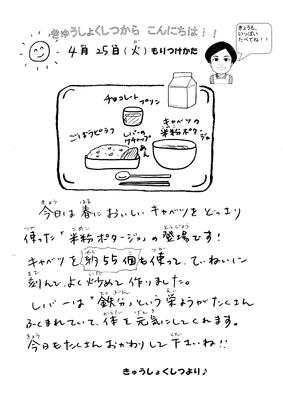 きゅうしょくしつから こんにちは!!
きょうも、
いっぱい
たべてね!!
4月 25日(火)もりつけかた
チョコレートプリン
ごぼうピラフ
レバーの
ケチャップ
あん
キャベツの
米粉ポタージュ
今日は 春に おいしい キャベツを どっさり
使った「米粉ポタージュ」の 登場です!
キャベツを 約55個も 使って、ていねいに
刻んで、よく 炒めて 作りました。
レバーは「鉄分」という 栄ようが たくさん
ふくまれていて、体を 元気にしてくれます。
今日も たくさん おかわりして 下さいね!!
きゅうしょくしつより♪